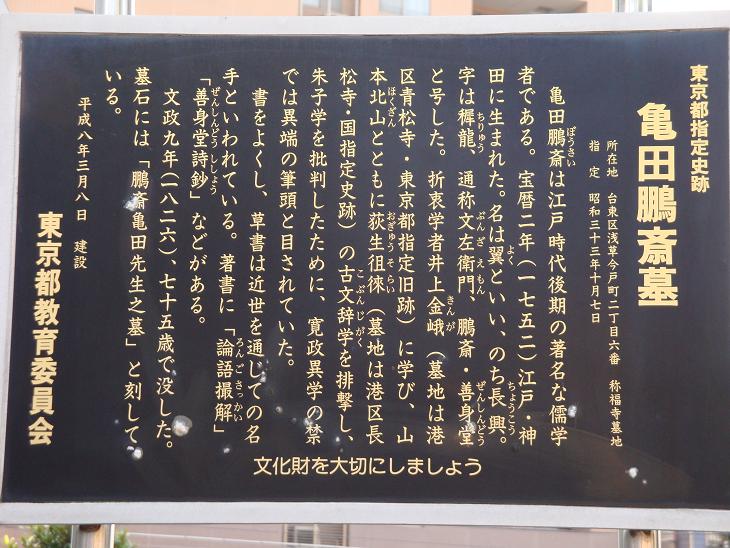 東京都指定史跡
亀田鵬斎墓
所在地 台東区浅草今戸町二丁目六番 称福寺墓地
指定 昭和三十三年十月七日
亀田鵬斎は江戸時代後期の著名な儒学
者である。宝暦二年(一七五二)江戸・神
田に生まれた。名は翼といい、のち長興。
字は穉龍、通称文左衛門、鵬斎・善身堂
と号した。折衷学者井上金峨(墓地は港
区青松寺・東京都指定旧跡)に学び、山
本北山とともに荻生徂徠(墓地は港区長
松寺・国指定史跡)の古文辞学を排撃し、
朱子学を批判したために、寛政異学の禁
では異端の筆頭と目されていた。
書をよくし、草書は近世を通じての名
手といわれている。著書に「論語撮解」
「善身堂詩鈔」などがある。
文政九年(一八二六)、七十五歳で没した。
墓石には「鵬斎亀田先生之墓」と刻して
いる。
平成八年三月八日 建設
東京都教育委員会
文化財を大切にしましょう